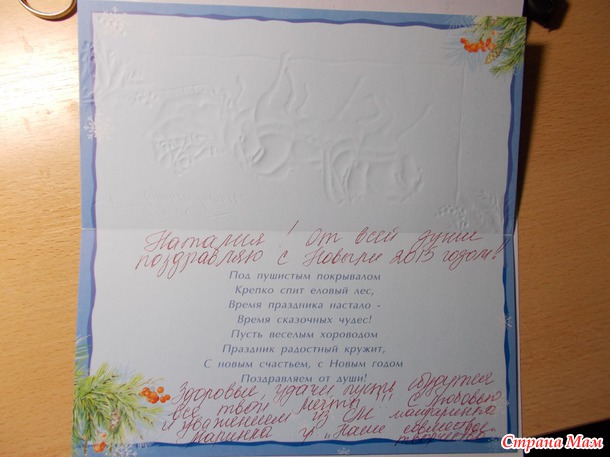 Наталия! От всей души
поздравляю с Новым 2015 годом!
Под пушистым покрывалом
Крепко спит еловый лес,
Время праздника настало -
Время сказочных чудес!
Пусть веселым хороводом
Праздник радостный кружит,
С новым счастьем, с Новым годом
Поздравляем от души!
Здоровье, удачи, пусть сбудутся
все твои мечты!!! С любовью
и уважением из СМ
Маринка и "Наше совместное
творчество"
Страна Мам